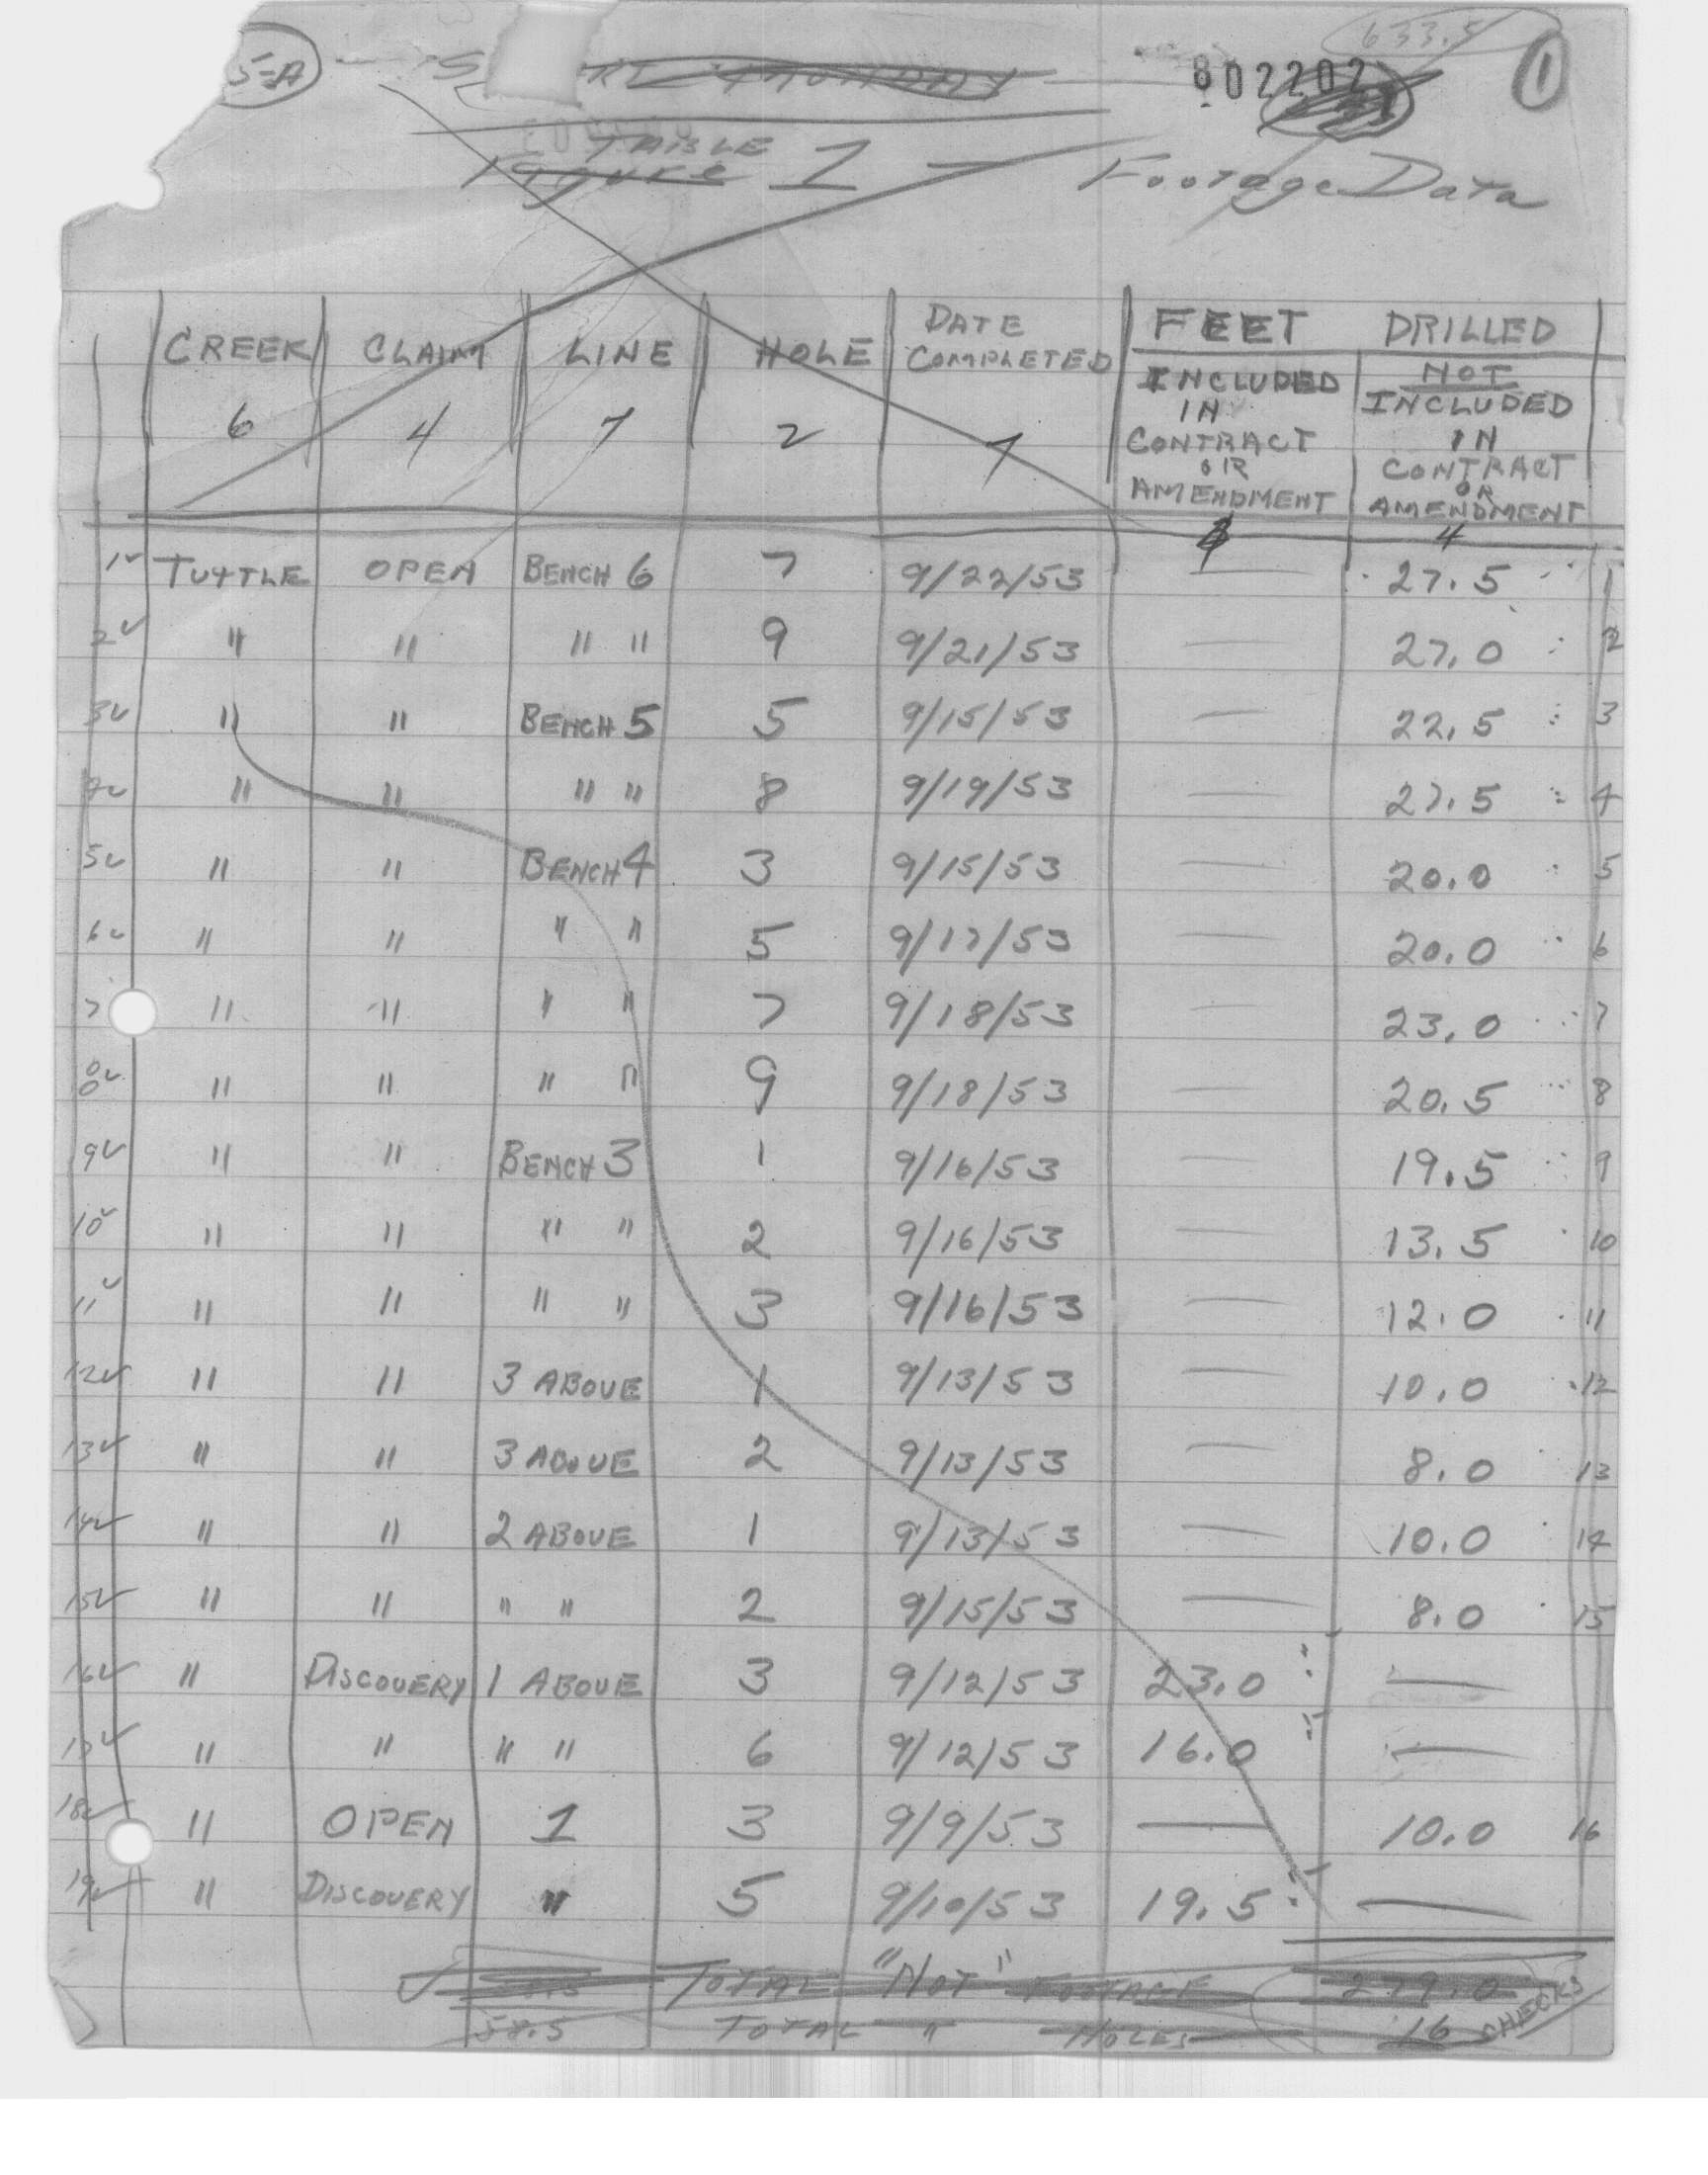 5-A
633.5
802202
1
TABLE
Figure 1 — Footage Data
CREEK CLAIM LINE HOLE DATE COMPLETED FEET DRILLED
INCLUDED IN CONTRACT OR AMENDMENT NOT INCLUDED IN CONTRACT OR AMENDMENT
6 4 7 2 7 4
1✓ TUTTLE OPEN BENCH 6 7 9/22/53 — 27.5 1
2✓ " " " " 9 9/21/53 — 27.0 2
3✓ " " BENCH 5 5 9/15/53 — 22.5 3
4✓ " " " " 8 9/19/53 — 27.5 4
5✓ " " BENCH 4 3 9/15/53 — 20.0 5
6✓ " " " " 5 9/17/53 — 20.0 6
7 " " " " 7 9/18/53 — 23.0 7
8✓ " " " " 9 9/18/53 — 20.5 8
9✓ " " BENCH 3 1 9/16/53 — 19.5 9
10✓ " " " " 2 9/16/53 — 13.5 10
11✓ " " " " 3 9/16/53 — 12.0 11
12✓ " " 3 ABOVE 1 9/13/53 — 10.0 12
13✓ " " 3 ABOVE 2 9/13/53 — 8.0 13
14✓ " " 2 ABOVE 1 9/13/53 — 10.0 14
15✓ " " " " 2 9/15/53 — 8.0 15
16✓ " DISCOVERY 1 ABOVE 3 9/12/53 23.0 —
17✓ " " " " 6 9/12/53 16.0 —
18✓ " OPEN 1 3 9/9/53 — 10.0 16
19✓ " DISCOVERY " 5 9/10/53 19.5 —
TOTAL "NOT" FOOTAGE 279.0
58.5 TOTAL " HOLES 16 CHECKS